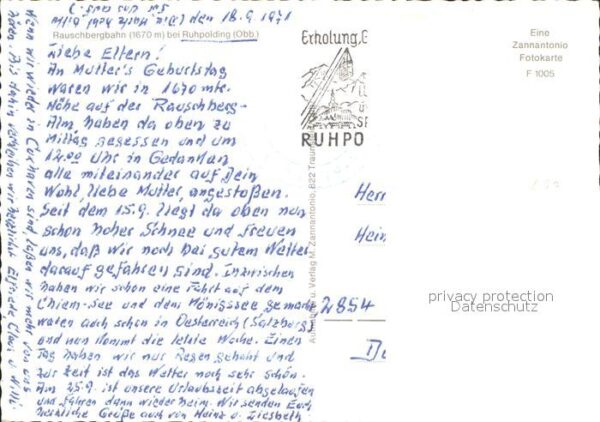 den 18.9.1971
Rauschbergbahn (1670 m) bei Ruhpolding (Obb.)
Liebe Eltern!
An Mutter's Geburtstag
waren wir in 1670 mtr.
Höhe auf der Rauschberg-
Alm, haben da oben zu
Mittag gegessen und um
12.00 Uhr in Gedanken
alle miteinander auf Dein
Wohl, liebe Mutter, angestoßen.
Seit dem 15.9. liegt da oben nun
schon hoher Schnee und freuen
uns, daß wir noch bei gutem Wetter
darauf gefahren sind. Inzwischen
haben wir schon eine Fahrt auf dem
Chiem-see und dem Königssee gemacht
waren auch schon in Oesterreich (Salzburg)
und nun kommt die letzte Woche. Einen
Tag haben wir nur Regen gehabt und
zur Zeit ist das Wetter noch sehr schön.
Am 25.9. ist unsere Urlaubszeit abgelaufen
und fahren dann wieder heim. Wir senden Euch
herzliche Grüße auch von Heinz u.
Wenn wir wieder in sind, laßen wir mehr von uns
hören. Bis dahin verbleiben wir herzlichst
Erholung,
RUHPO
Eine
Zannantonio
Fotokarte
F 1005
u. Verlag M. Zannantonio, 822 Traun
Herr
Hein
2854
privacy protection
Datenschutz